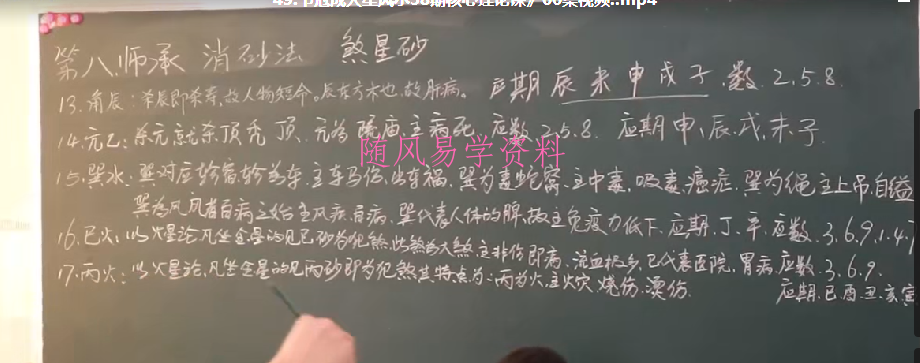 第八师承 消砂法 煞星砂
13.角辰:杀辰即杀寿,故人物短命。辰在方木也,故肝病。 应期辰未申戌子.数2.5.8.
14.亢乙:杀亢就杀顶秃顶.亢为 庙.主病死.应数2.5.8. 应期申、辰、戌、未子
随风易学资料
15.巽水:巽对应轸宿,轸为车.主车马伤,出车祸,巽为毒蛇窝.主中毒,吸毒.癌症.巽为绳主上吊,自缢
巽为风风者百病之始主风疾、百病.巽代表人体的脾,故主免疫力低下.应期.丁.辛.应数.3.6.9.1.4.7
16.巳火:以火星论凡坐金星的见巳砂为犯煞.此煞为大煞.主非伤即病.流血极多.巳代表医院.胃病.应数.3.6.9.
17.丙火:以火星论,凡坐金星的见丙砂即为犯煞其特点为:丙为火,主火灾.烧伤.烫伤.
应期.巳酉.丑.亥寅